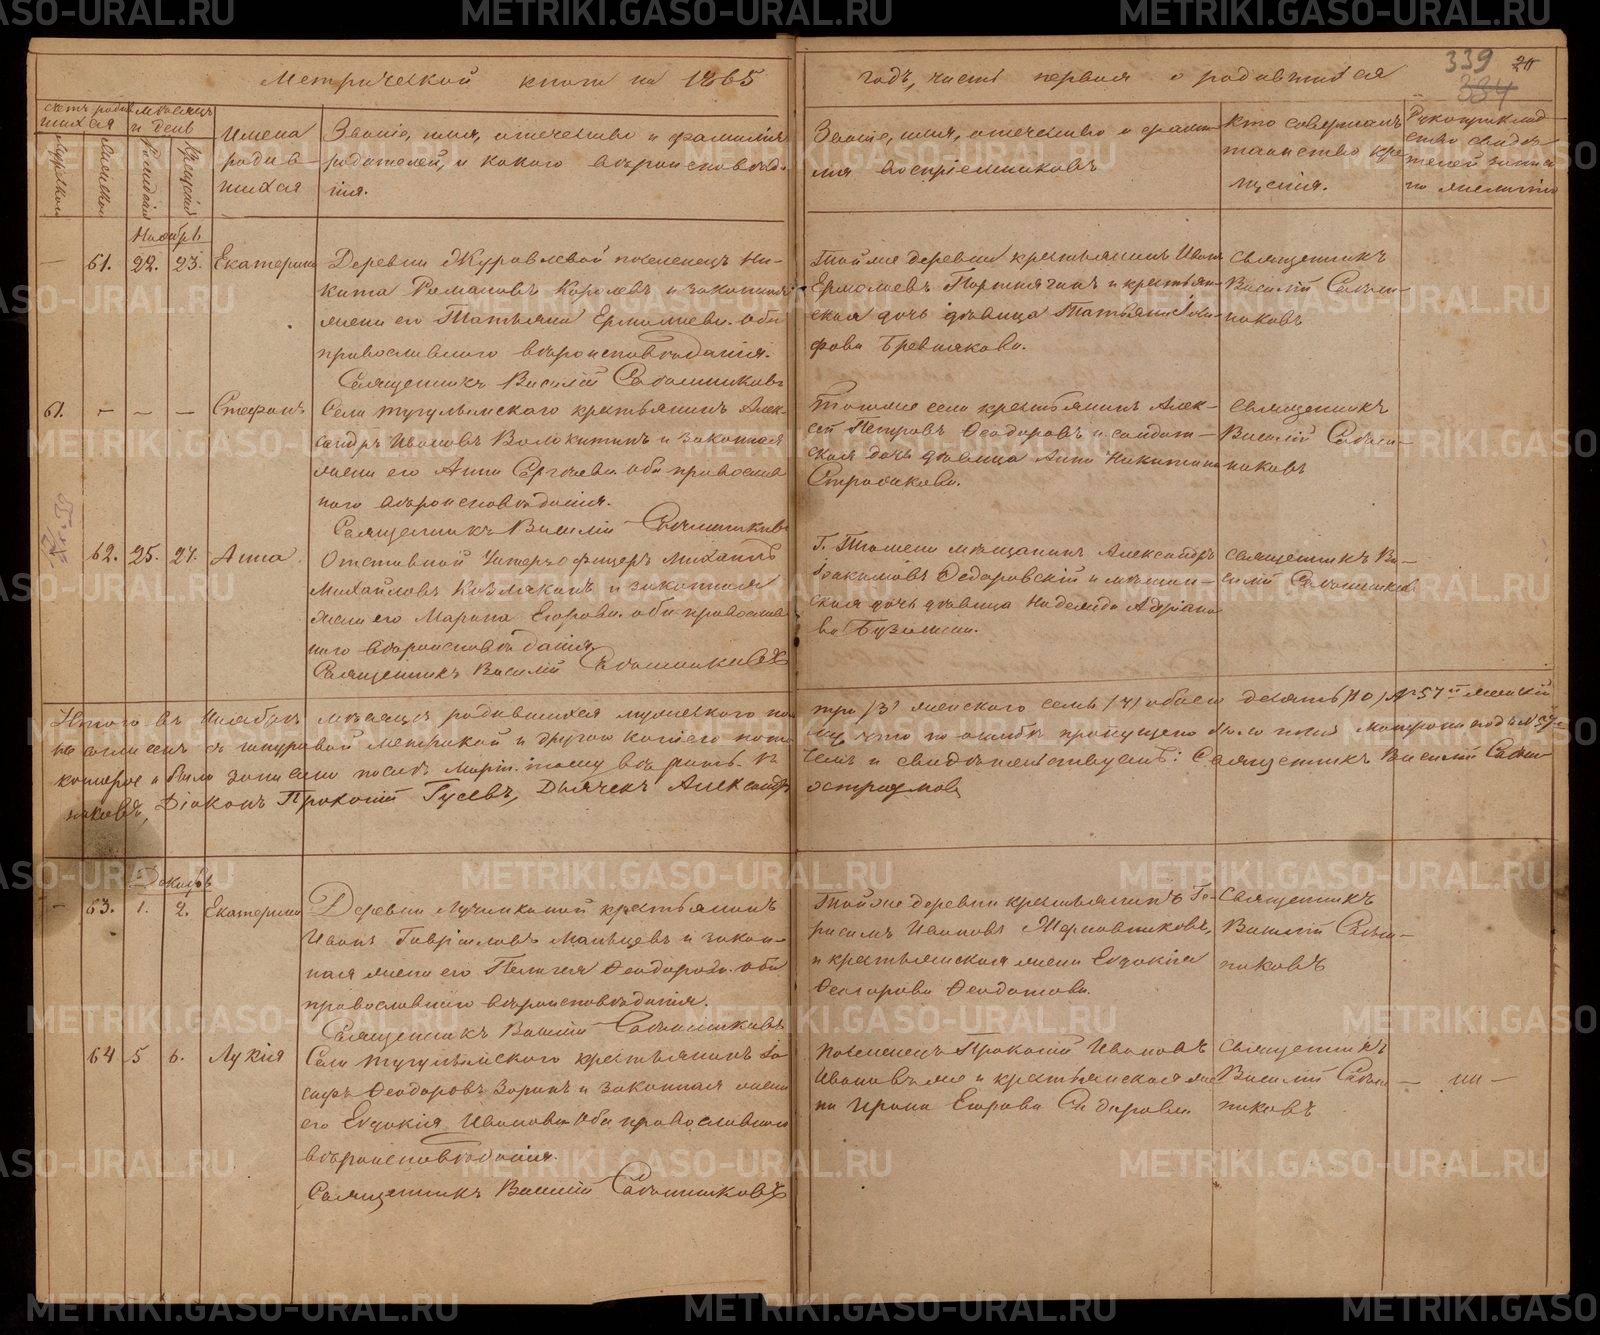 Метрической книги на 1865
годъ, часть первая о родившихся
339
384
Счетъ родив
шихся
Мѣсяцъ
и день
Мужескаго
Женскаго
Рожденія
Крещенія
Имена
родив
шихся
Званіе, имя, отечество и фамилія
родителей, и какого вѣроисповѣда-
нія.
Званіе, имя, отечество и фами-
лія воспріемниковъ
Кто совершалъ
таинство кре
щенія.
Рукоприклад
ство свидѣ
телей записи
по желанію
Ноябрь
— 61. 22. 23. Екатерина
Деревни Журавлевой поселенецъ Ни-
кита Романовъ Королевъ и законная
жена его Татьяна Ермолаева. оба
православнаго вѣроисповѣданія.
Священникъ Василій Сабышниковъ
Тойже деревни крестьянинъ Иванъ
Ермолаевъ и крестьян-
ская дочь дѣвица Татьяна
фова Бревнякова.
Священникъ
Василій Сабыш-
никовъ
61. — — — Стефанъ
Села Тугулымскаго крестьянинъ Алек-
сандръ Ивановъ Волокитинъ и законная
жена его Анна Сергѣева оба православ
наго вѣроисповѣданія.
Священникъ Василій Сабышниковъ
Тогоже села крестьянинъ Алек-
сѣй Петровъ Ѳеодоровъ и солдат-
ская дочь дѣвица Анна Никитина
Священникъ
Василій Сабыш-
никовъ
62. 25. 27. Анна
Отставной Унтеръ-офицеръ Михаилъ
Михайловъ и законная
жена его Марина Егорова. оба православ
наго вѣроисповѣданія
Священникъ Василій Сабышниковъ
Г. Тюмени мѣщанинъ Александръ
Іоакимовъ Ѳедоровскій и мѣщан-
ская дочь дѣвица Надежда Адріано
ва
Священникъ Ва-
силій Сабышников
Итого въ Ноябрѣ мѣсяцѣ родившихся мужескаго пола
три /3/ женскаго семь /7/ обоего десять /10/ № 57й женскій
не согласенъ съ шнуровой метрикой и другою копіею пото
му что по ошибкѣ пропущено было имя Матрона подъ № 57
которое и было записано послѣ
чемъ и свидѣтельствуемъ: Священникъ Василій Сабыш
никовъ, Діаконъ Прокопій Гусевъ, Дьячекъ Александръ
Остроумовъ
Декабрь
— 63. 1. 2. Екатерина
Деревни Лучинкиной крестьянинъ
Иванъ Гавріиловъ Мальцевъ и закон-
ная жена его Пелагея Ѳеодорова. оба
православнаго вѣроисповѣданія.
Священникъ Василій Сабышниковъ
Тойже деревни крестьянинъ Ге-
расимъ Ивановъ Жерновниковъ,
и крестьянская жена Евдокія
Ѳеодорова Ѳедотова.
Священникъ
Василій Сабыш-
никовъ
64 5 6. Лукія
Села Тугулымскаго крестьянинъ Іо
сифъ Ѳеодоровъ Зоринъ и законная жена
его Евдокія Иванова оба православнаго
вѣроисповѣданія.
Священникъ Василій Сабышниковъ
Поселенецъ Прокопій Ивановъ
Ивановъ же и крестьянская же
на Ирина Егорова Сидорова
Священникъ
Василій Сабыш —
никовъ
METRIKI.GASO-URAL.RU